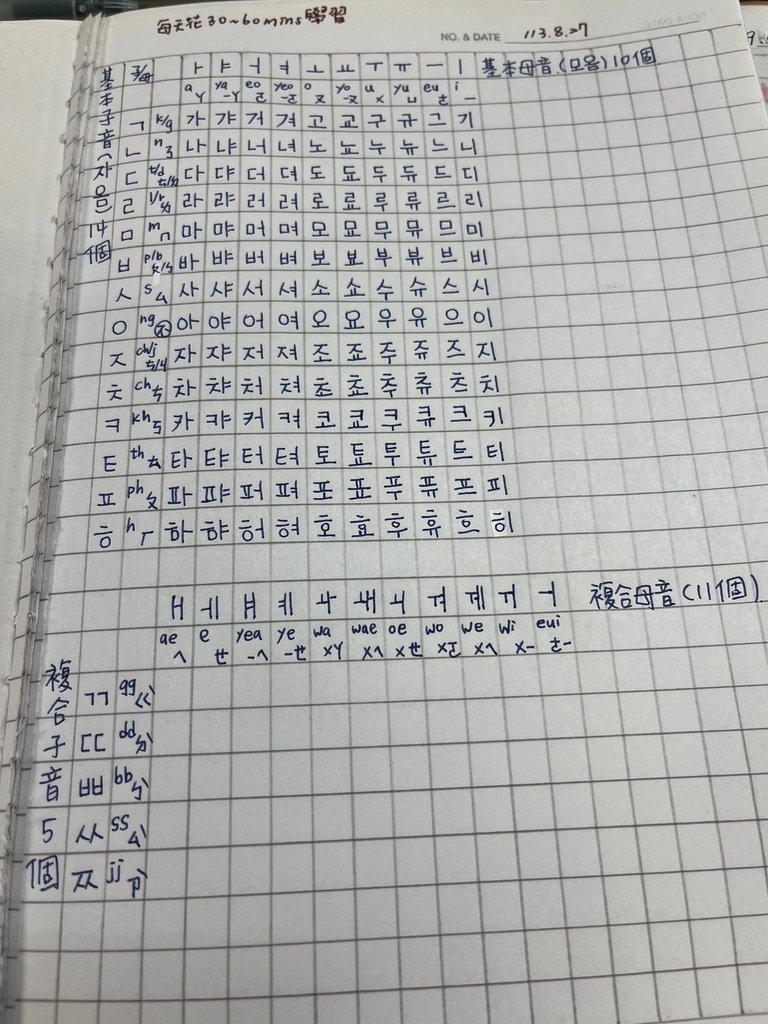 每天花30~60mins學習
NO. & DATE 113.8.27
基本子音(자음)14個
ㅏ ㅑ ㅓ ㅕ ㅗ ㅛ ㅜ ㅠ ㅡ ㅣ 基本母音(모음)10個
a ya eo yeo o yo u yu eu i
ㄚ ㄧㄚ ㄛ ㄧㄛ ㄡ ㄧㄡ ㄨ ㄩ ㄜ ㄧ
ㄱ k/g 가 갸 거 겨 고 교 구 규 그 기
ㄴ n ㄋ 나 냐 너 녀 노 뇨 누 뉴 느 니
ㄷ t/d ㄊ/ㄉ 다 댜 더 뎌 도 됴 두 듀 드 디
ㄹ l/r ㄌ 라 랴 러 려 로 료 루 류 르 리
ㅁ m ㄇ 마 먀 머 며 모 묘 무 뮤 므 미
ㅂ p/b ㄆ/ㄅ 바 뱌 버 벼 보 뵤 부 뷰 브 비
ㅅ s ㄙ 사 샤 서 셔 소 쇼 수 슈 스 시
ㅇ ng 아 야 어 여 오 요 우 유 으 이
ㅈ ch/j ㄘ/ㄐ 자 쟈 저 져 조 죠 주 쥬 즈 지
ㅊ ch ㄘ 차 챠 처 쳐 초 쵸 추 츄 츠 치
ㅋ kh ㄎ 카 캬 커 켜 코 쿄 쿠 큐 크 키
ㅌ th ㄊ 타 탸 터 텨 토 툐 투 튜 트 티
ㅍ ph ㄆ 파 퍄 퍼 펴 포 표 푸 퓨 프 피
ㅎ h ㄏ 하 햐 허 혀 호 효 후 휴 흐 히
ㅐ ㅔ ㅒ ㅖ ㅘ ㅙ ㅚ ㅝ ㅞ ㅟ ㅢ 複合母音(11個)
ae e yea ye wa wae oe wo we wi eui
ㄟ ㄝ ㄧㄟ ㄧㄝ ㄨㄚ ㄨㄟ ㄨㄝ ㄨㄛ ㄨㄟ ㄨㄧ ㄜㄧ
複合子音5個
ㄲ gg ㄍˋ
ㄸ dd ㄉˋ
ㅃ bb ㄅˋ
ㅆ ss ㄙˋ
ㅉ jj ㄗˋ